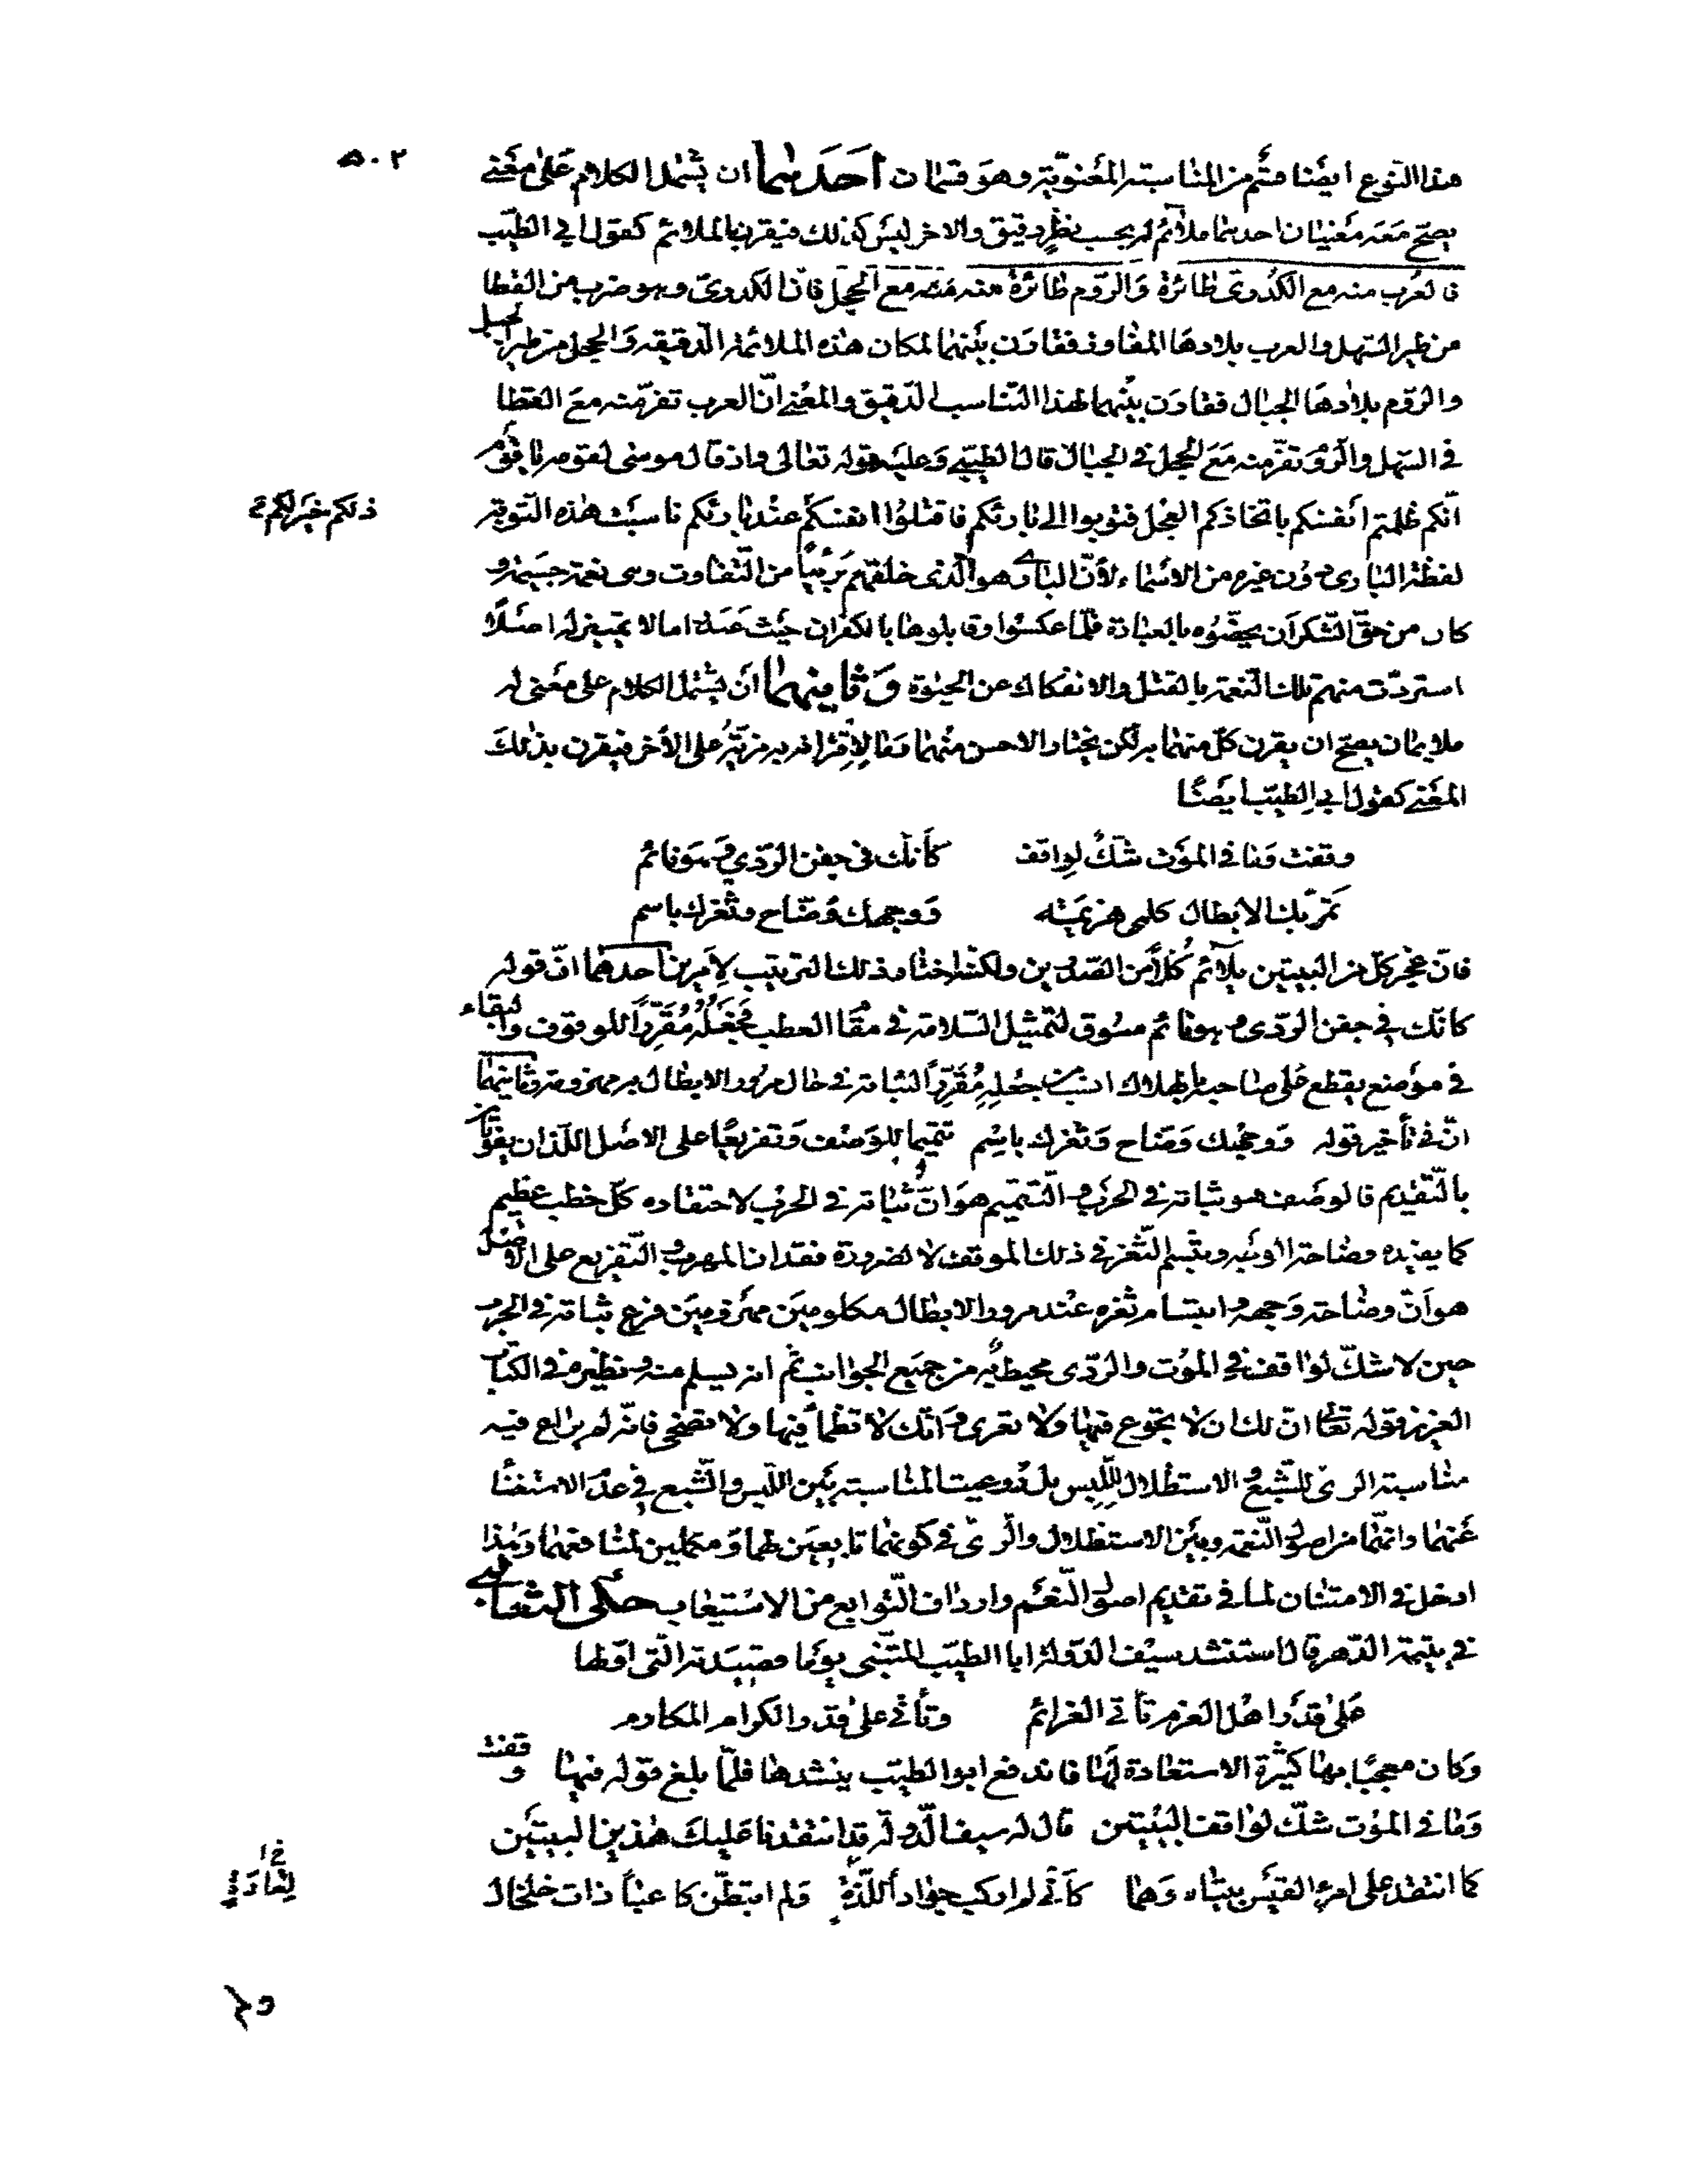 ٥٠٢
هذا النوع ايضا قسم من المناسبة المعنوية وهو قسمان احدهما ان يشمل الكلام على معنى
يصح معه معنيان احدهما ملائم له بحسب نظر دقيق والاخر ليس كذلك فيقرن بالملائم كقول ابي الطيب
فالعرب منه مع الكدرى طائرة والروم طائرة منه مع الحجل فان الكدرى وهو ضرب من القطا
من طير السهل والعرب بلادها المفاوز فقارن بينهما لمكان هذه الملائمة الدقيقة والحجل من طير الجبل
والروم بلادها الجبال فقارن بينهما لهذا التناسب الدقيق والمعنى ان العرب تفر منه مع القطا
في السهل والروم تفر منه مع الحجل في الجبال قال الطيبي وعليه قوله تعالى واذ قال موسى لقومه يا قوم
انكم ظلمتم انفسكم باتخاذكم العجل فتوبوا الى بارئكم فاقتلوا انفسكم عند بارئكم ناسبت هذه التوبة
ذلكم خير لكم
لفظة البارى دون غيره من الاسماء لان البارى هو الذى خلقهم بريئا من التفاوت وهى نعمة جسيمة و
كان من حق الشكر ان يخصوه بالعبادة فلما عكسوا وقابلوها بالكفران حيث عبدوا ما لا تمييز له اصلا
استردت منهم تلك النعمة بالقتل والانفكاك عن الحيوة وثانيهما ان يشمل الكلام على معنى له
ملايمان يصح ان يقرن كل منهما به لكن يختار الاحسن منهما وما لاقترانه به مزية على الاخر فيقرن بذلك
المعنى كقول ابي الطيب ايضا
وقفت وما في الموت شك لواقف كأنك في جفن الردى وهو نائم
تمر بك الابطال كلمى هزيمة ووجهك وضاح وثغرك باسم
فان عجز كل من البيتين يلائم كلا من الصدرين ولكنه اختار ذلك الترتيب لامرين احدهما ان قوله
كانك في جفن الردى وهو نائم مسوق لتمثيل السلامة في مقام العطب فجعله مقررا للوقوف والبقاء
في موضع يقطع على صاحبه بالهلاك انسب من جعله مقررا لثباته في حال مرور الابطال به مهزومة وثانيهما
ان في تأخير قوله ووجهك وضاح وثغرك باسم تتميما للوصف وتفريعا على الاصل اللذان يفوتان
بالتقديم فالوصف هو ثباته في الحرب والتتميم هو ان ثباته في الحرب لاحتقاره كل خطب عظيم
كما يفيده وضاحة الوجه وتبسم الثغر في ذلك الموقف لا لضرورة فقدان المهرب والتفريع على الاصل
هو ان وضاحة وجهه وابتسام ثغره عند مرور الابطال مكلومين مهزومين فرع ثباته في الحرب
حين لا شك لواقف في الموت والردى محيط به من جميع الجوانب ثم انه يسلم منه ونظيره في الكتاب
العزيز قوله تعالى ان لك ان لا تجوع فيها ولا تعرى وانك لا تظمأ فيها ولا تضحى فانه لم يراع فيه
مناسبة الرى للشبع والاستظلال للبس بل روعيت المناسبة بين اللبس والشبع في عدم الاستغناء
عنهما وانهما من اصول النعمة وبين الاستظلال والرى في كونهما تابعين لهما ومكملين لمنافعهما وهذا
ادخل في الامتنان لما في تقديم اصول النعم وارداف التوابع من الاستيعاب حكى الثعالبي
في يتيمة الدهر قال استنشد سيف الدولة ابا الطيب المتنبى يوما قصيدته التى اولها
على قدر اهل العزم تأتي العزائم وتأتي على قدر الكرام المكارم
وكان معجبا بها كثيرة الاستعادة لها فاندفع ابو الطيب ينشدها فلما بلغ قوله فيها وقفت
وما في الموت شك لواقف البيتين قال له سيف الدولة قد انتقدنا عليك هذين البيتين
كما انتقد على امرء القيس بيتاه وهما كأني لم اركب جوادا للذة ولم اتبطن كاعبا ذات خلخال
لغادة